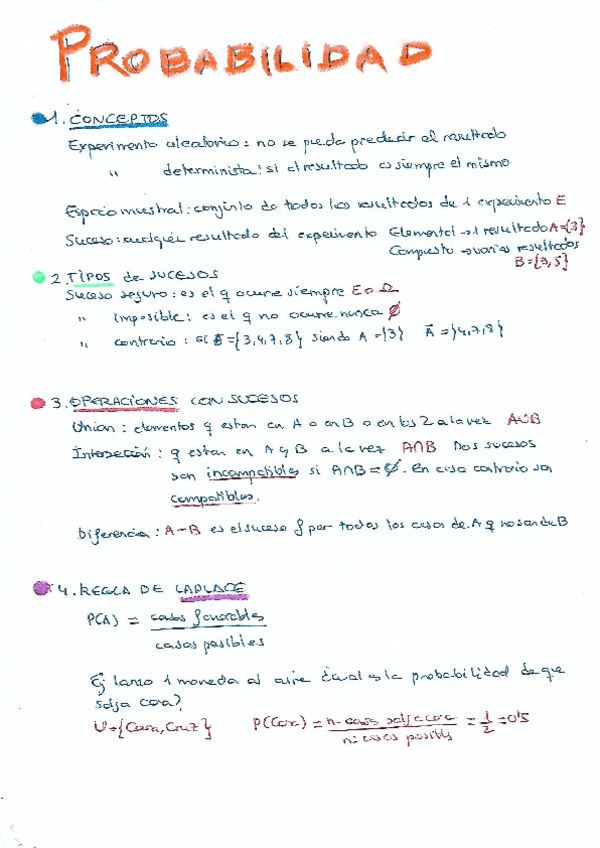 PROBABILIDAD
1. CONCEPTOS
Experimento aleatorio: no se puede predecir el resultado
" determinista: si el resultado es siempre el mismo
Espacio muestral: conjunto de todos los resultados de 1 experimento E
Suceso: cualquier resultado del experimento Elemental → 1 resultado A={3}
Compuesto → varios resultados
B={3,5}
2. TIPOS de SUCESOS
Suceso seguro: es el q ocurre siempre E o Ω
" imposible: es el q no ocurre nunca Ø
" contrario: si E={3,4,7,8} siendo A={3} Ā={4,7,8}
3. OPERACIONES CON SUCESOS
Union: elementos q estan en A o en B o en los 2 a la vez AUB
Intersección: q estan en A y B a la vez A∩B Dos sucesos
son incompatibles si A∩B=Ø. En caso contrario son
compatibles.
Diferencia: A-B es el suceso f por todos los casos de A q no son de B
4. REGLA DE LAPLACE
P(A) = casos favorables
casos posibles
Ej lanzo 1 moneda al aire ¿cual es la probabilidad de que
salga cara?
U={Cara, Cruz} P(Cara) = n· casos salga cara = 1/2 = 0'5
n· casos posibls